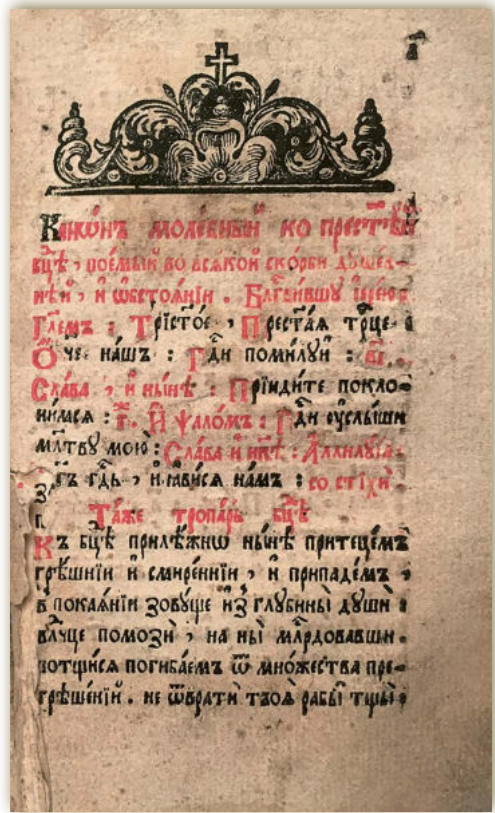 Канѡ́нъ моле́бный ко прест҃ѣ́й
бц҃ѣ, пое́мый во всѧ́кой ско́рби дꙋше́в-
нѣй, и҆ ѡ҆бстоѧ́нїи. Блг҃ви́вшꙋ і҆ере́ю
Гл҃емъ: Трист҃о́е, Прест҃а́ѧ трⷪ҇це
Ѻ҆́че на́шъ: Гдⷭ҇и поми́лꙋй: в҃і.
Сла́ва, и҆ ны́нѣ: Прїиди́те покло-
ни́мсѧ: г҃. И҆ ѱало́мъ: Гдⷭ҇и ᲂу҆слы́ши
мл҃твꙋ мою̀: Сла́ва и҆ нн҃ѣ: А҆ллилꙋ́їа:
гдⷭ҇ь, и҆ ꙗ҆ви́сѧ на́мъ: со стїхи̂.
Та́же тропа́рь бц҃ѣ
Къ бц҃ѣ прилѣ́жнѡ ны́нѣ притеце́мъ
грѣ́шнїи и҆ смире́ннїи, и҆ припаде́мъ,
в покаѧ́нїи зовꙋ́ще и҆з̾ глꙋбины̀ дꙋшѝ
влⷣчце помозѝ, на ны̀ млⷭ҇рдовавши
потщи́сѧ погиба́емъ ѿ мно́жества пре-
грѣше́нїй. не ѿвратѝ твоѧ̑ рабы̑ тщы̀,